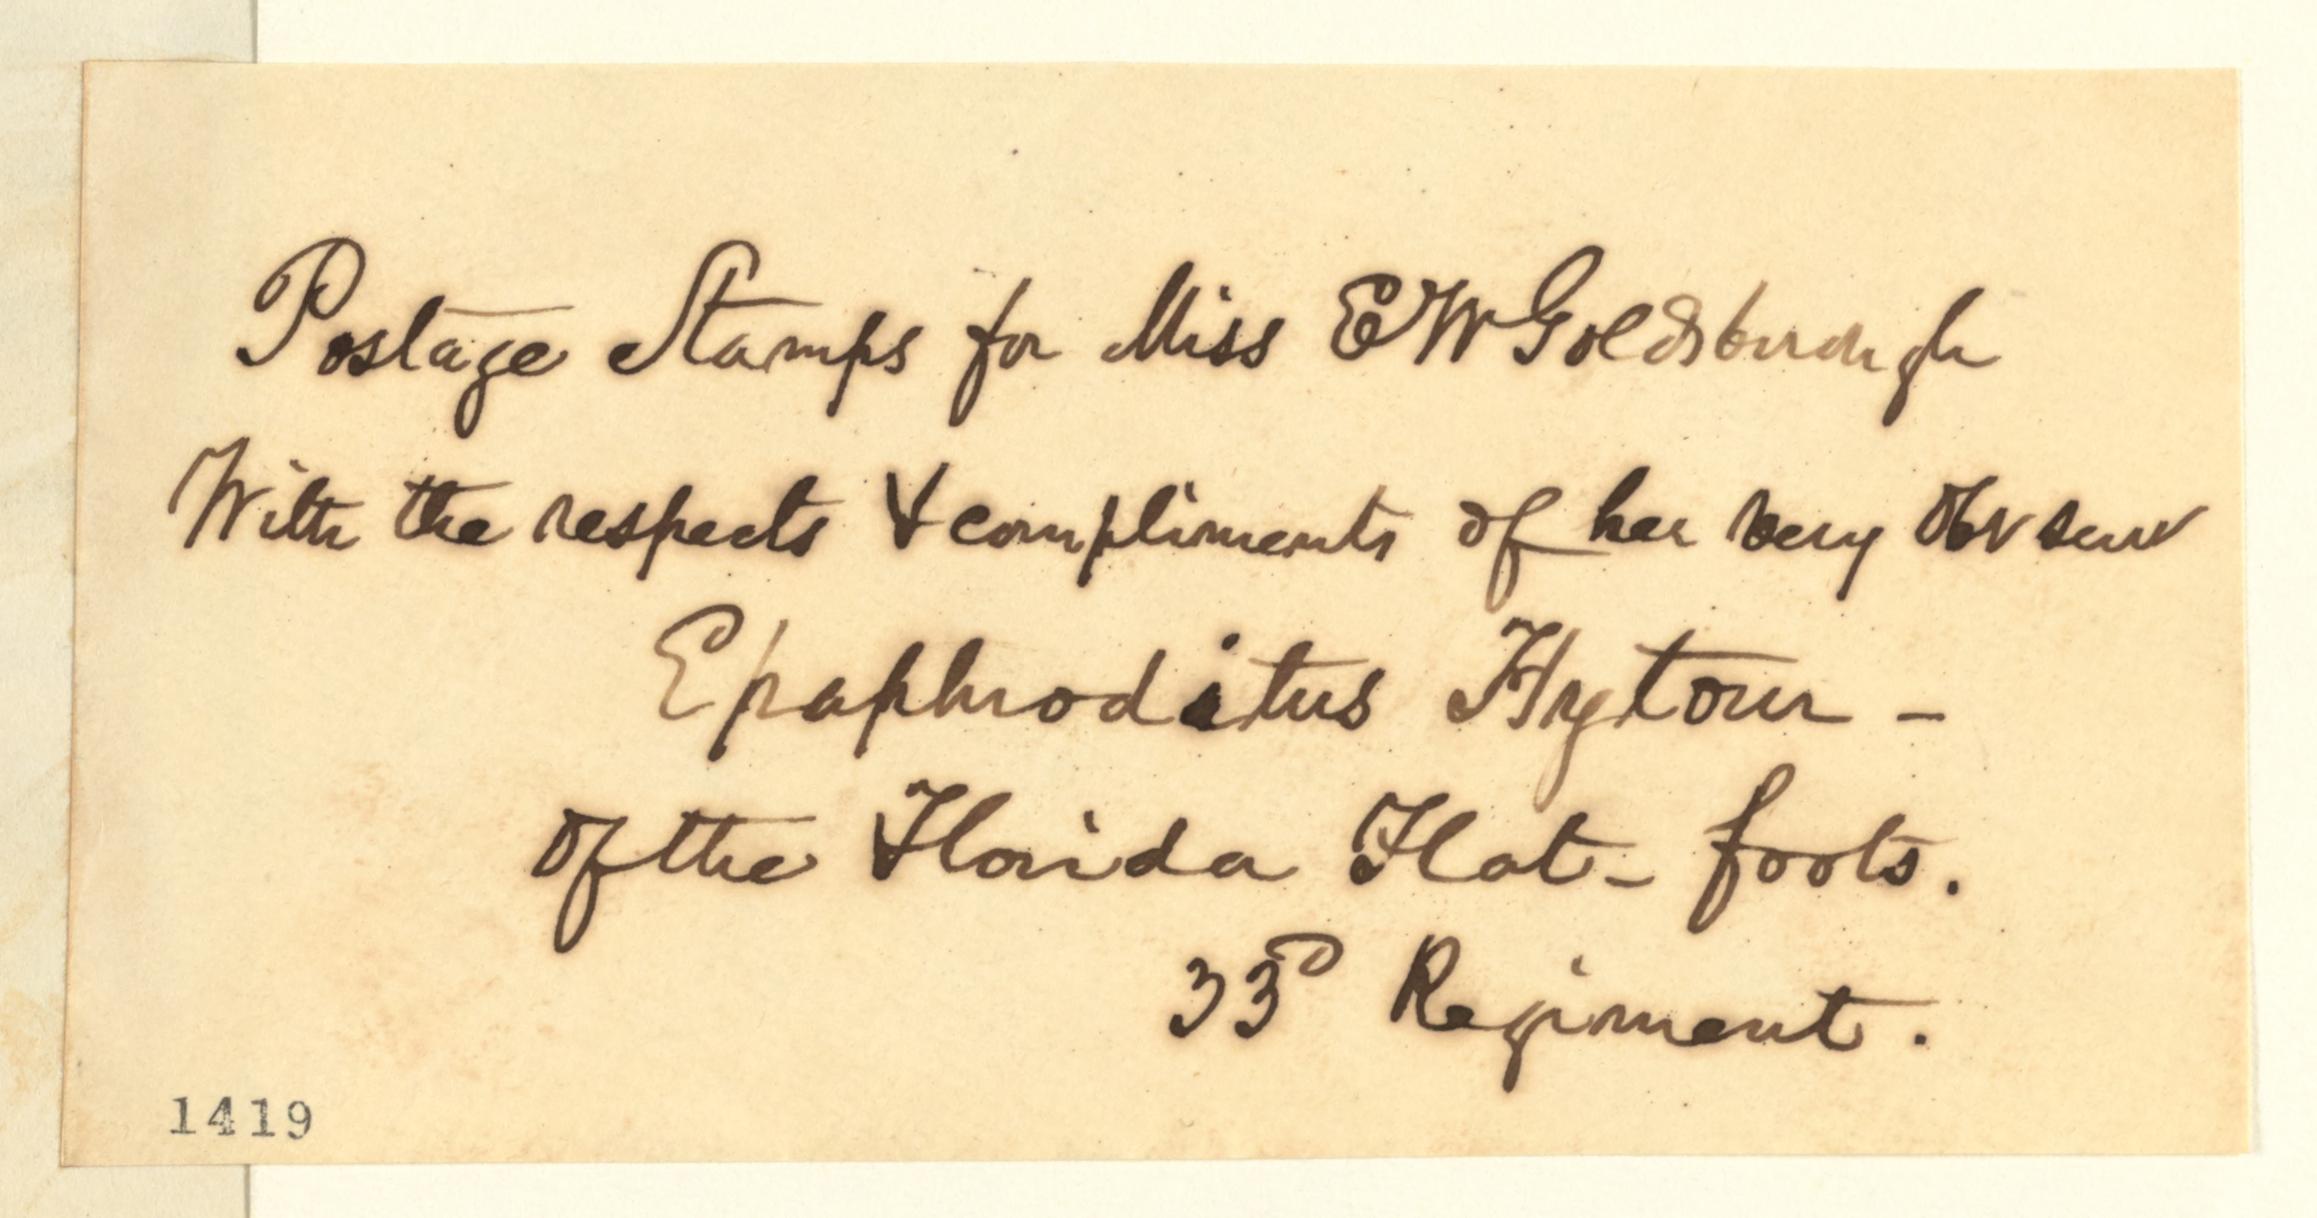 Postage Stamps for Miss E W Goldsborough
With the respects & compliments of her very Obt serv
Epaphroditus Hytour -
Of the Florida Flat - foots.
33D Regiment.
1419